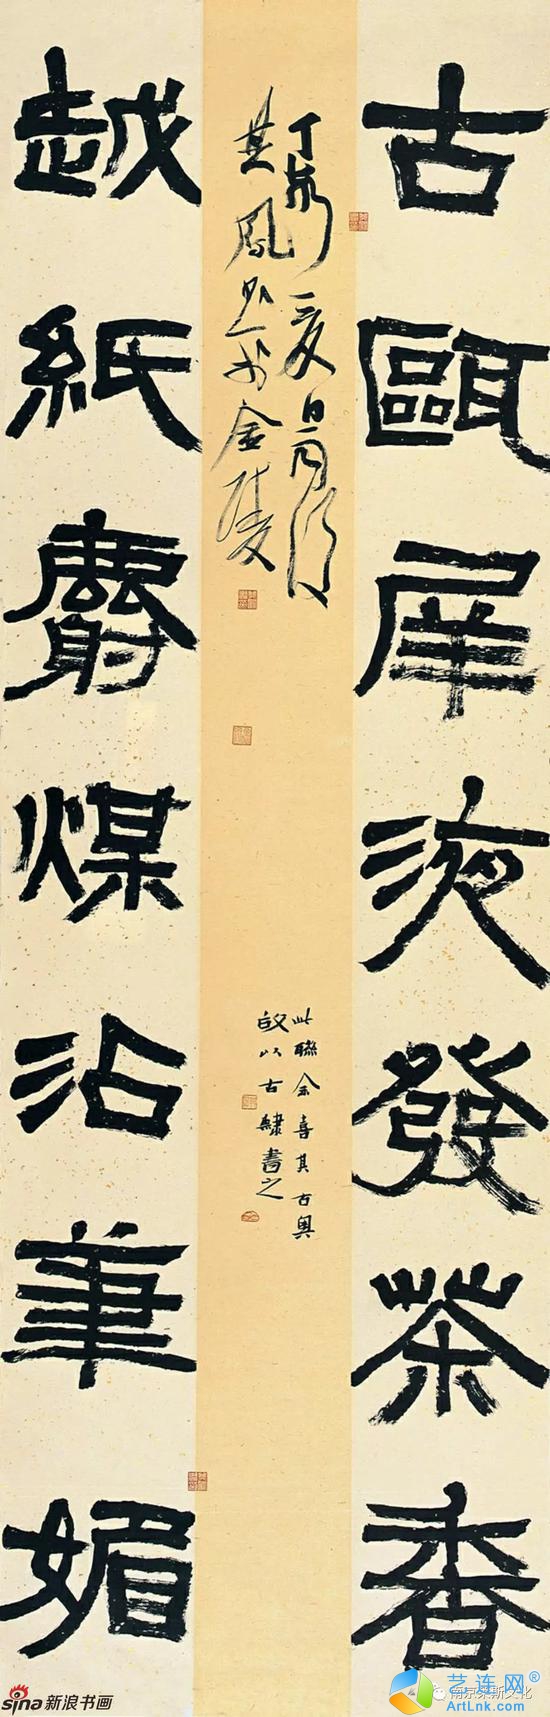 古甌犀液發茶香
丁亥夏日
金陵
此聯余喜其古奧
故以古隸書之
越紙麝煤沾筆媚
sina新浪书画
南京莱斯文化
艺连网®
ArtLnk.com